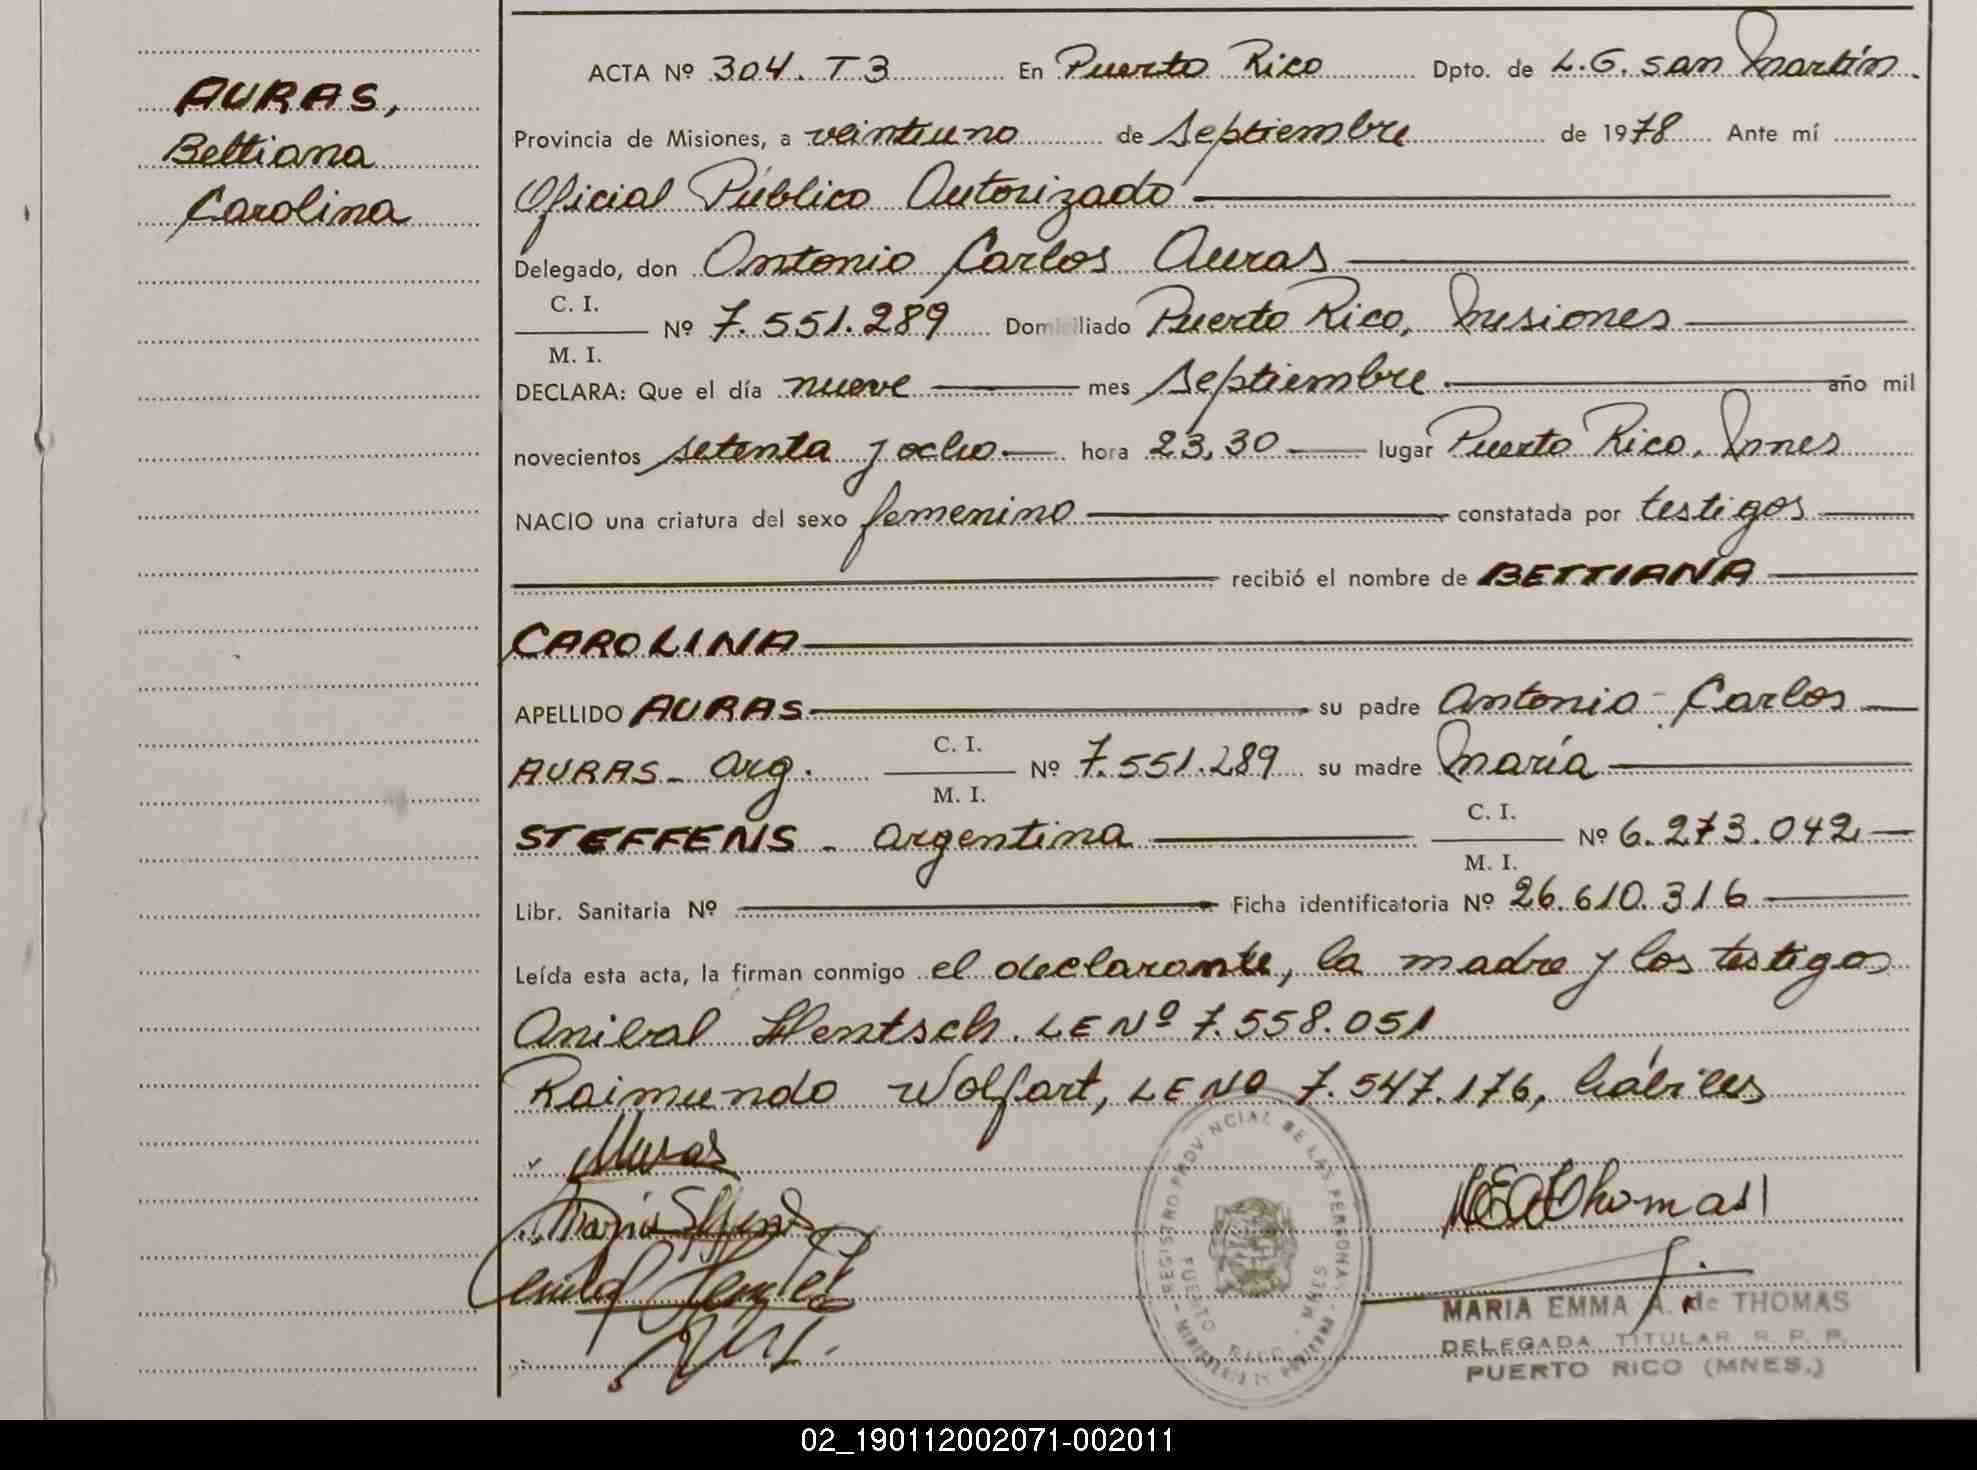 AURAS,
Bettiana
Carolina
ACTA Nº 304. T3 En Puerto Rico Dpto. de L.G. San Martín.
Provincia de Misiones, a veintiuno de Septiembre de 1978 Ante mí
Oficial Público Autorizado
Delegado, don Antonio Carlos Auras
C. I.
M. I.
Nº 7.551.289 Domiciliado Puerto Rico, Misiones
DECLARA: Que el día nueve mes Septiembre año mil
novecientos setenta y ocho hora 23,30 lugar Puerto Rico, Mnes
NACIO una criatura del sexo femenino constatada por testigos
recibió el nombre de BETTIANA
CAROLINA
APELLIDO AURAS su padre Antonio Carlos
AURAS - Arg. C. I. M. I. Nº 7.551.289 su madre María
STEFFENS - argentina C. I. M. I. Nº 6.273.042
Libr. Sanitaria Nº Ficha identificatoria Nº 26.610.316
Leída esta acta, la firman conmigo el declarante, la madre y los testigos
Anibal Hentsch. LE Nº 7.558.051
Raimundo Wolfart, LE Nº 7.547.176, hábiles
Auras
María Steffens
REGISTRO PROVINCIAL DE LAS PERSONAS
PUERTO RICO - MNES
MARIA EMMA A. de THOMAS
DELEGADA TITULAR R. P. P.
PUERTO RICO (MNES.)
02_190112002071-002011